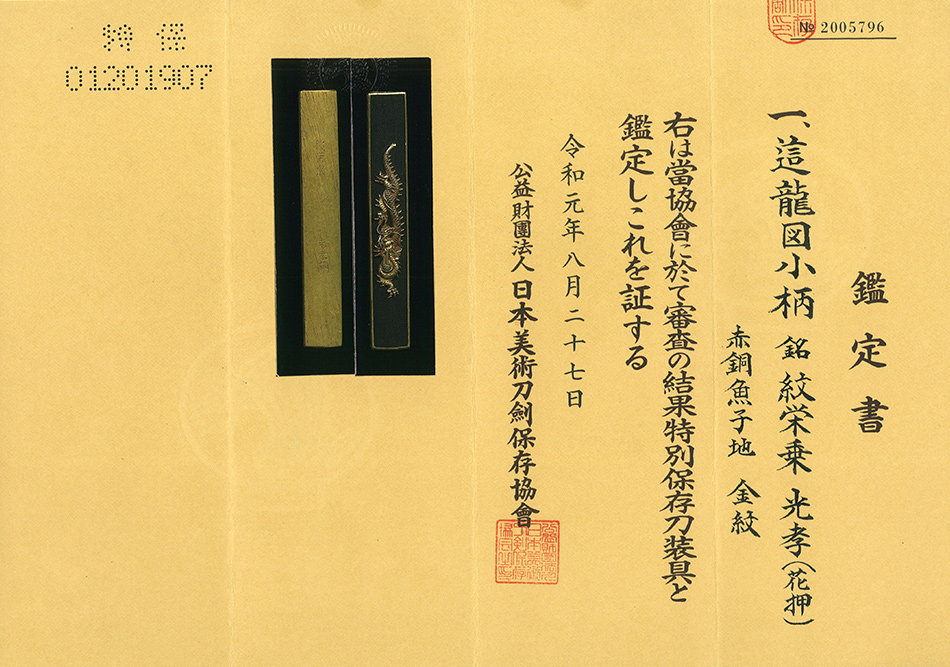 鑑定書
№ 2005796
一、這龍図小柄 銘 紋栄乗 光孝(花押)
赤銅魚子地 金紋
右は當協會に於て審査の結果特別保存刀装具と
鑑定しこれを証する
令和元年八月二十七日
公益財團法人 日本美術刀劍保存協會
特保
01201907